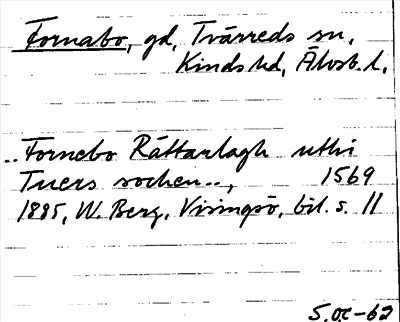 Fornabo, gd, Tvärreds sn,
Kinds hd, Älvsb. l.
..Fornebo Rättarlagh uthi
Tuers sochen.., 1569
1885, W. Berg, Visingsö, bil. s. 11
S.OC-62